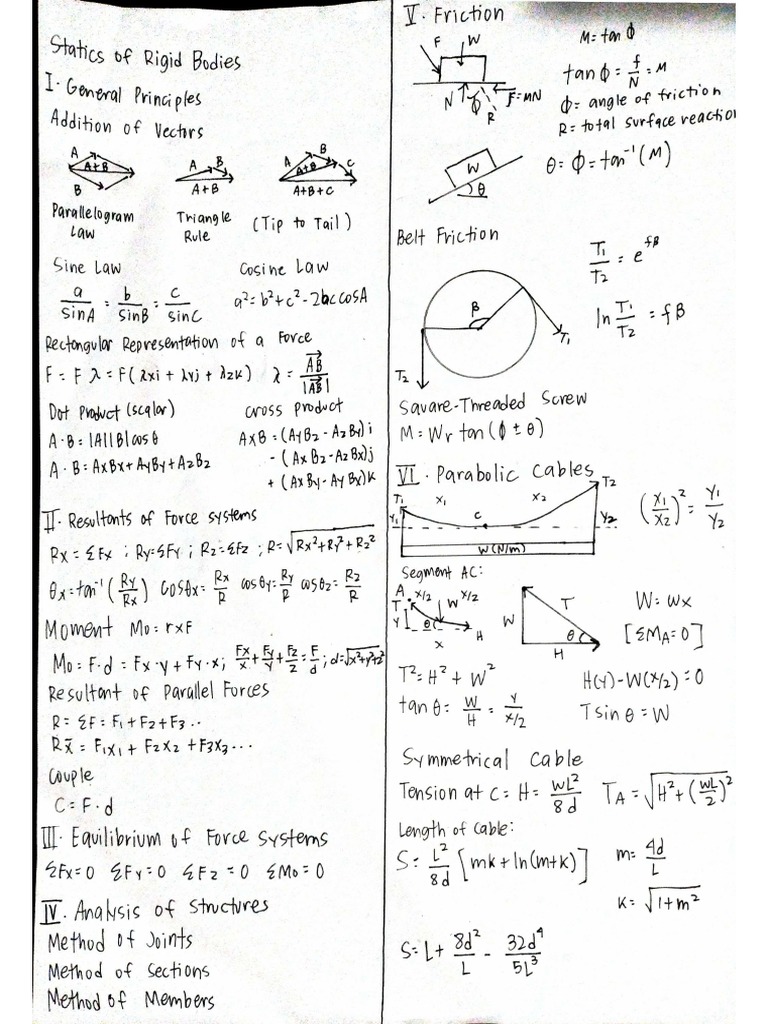 Statics of Rigid Bodies
I. General Principles
Addition of Vectors
A A+B B
A B A+B
A B A+B C A+B+C
Parallelogram Law
Triangle Rule
(Tip to Tail)
Sine Law
Cosine Law
a/sinA = b/sinB = c/sinC
a² = b² + c² - 2bc cosA
Rectangular Representation of a Force
F = F λ = F(λxi + λyj + λzk) λ = AB/|AB|
Dot Product (scalar)
A·B = |A||B|cosθ
A·B = AxBx + AyBy + AzBz
Cross Product
AxB = (AyBz - AzBy)i
- (AxBz - AzBx)j
+ (AxBy - AyBx)k
II. Resultants of Force systems
Rx = ΣFx ; Ry = ΣFy ; Rz = ΣFz ; R = √Rx² + Ry² + Rz²
θx = tan⁻¹(Ry/Rx) cosθx = Rx/R cosθy = Ry/R cosθz = Rz/R
Moment Mo = r x F
Mo = F·d = Fx·y + Fy·x ; Fx/x + Fy/y + Fz/z = F/d ; d = √x²+y²+z²
Resultant of Parallel Forces
R = ΣF = F1 + F2 + F3 ..
Rx̄ = F1x1 + F2x2 + F3x3 ...
Couple
C = F·d
III. Equilibrium of Force Systems
ΣFx = 0 ΣFy = 0 ΣFz = 0 ΣMo = 0
IV. Analysis of Structures
Method of Joints
Method of Sections
Method of Members
V. Friction
F W N φ R F=MN
M = tan φ
tan φ = f/N = M
φ = angle of friction
R = total surface reaction
W θ
θ = φ = tan⁻¹(M)
Belt Friction
β T1 T2
T1/T2 = e^fβ
ln T1/T2 = fβ
Square-Threaded Screw
M = Wr tan(φ ± θ)
VI. Parabolic Cables
T1 x1 x2 T2
y1 C y2
W(N/m)
(x1/x2)² = y1/y2
Segment AC:
A x/2 x/2
T W
y θ H
x
W T θ H
W = wx
[ΣMA = 0]
T² = H² + W²
H(y) - W(x/2) = 0
tan θ = W/H = y/x/2
T sin θ = W
Symmetrical Cable
Tension at C = H = wL²/8d TA = √H² + (wL/2)²
Length of Cable:
S = L²/8d [mk + ln(m+k)] m = 4d/L
k = √1+m²
S = L + 8d²/L - 32d⁴/5L³